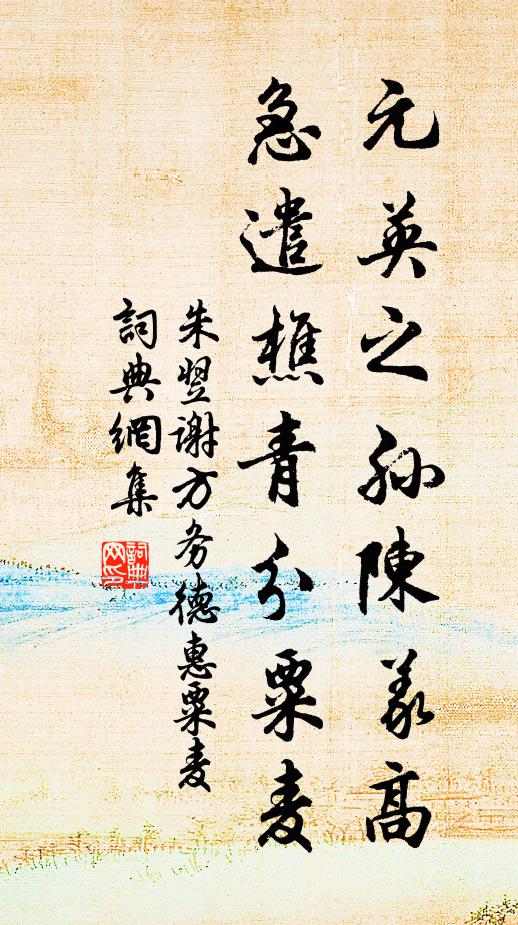 元英之孙陳義高
急遣樵青分粟麦
朱翌谢方务德惠粟麦
詞典網集
詞典网印